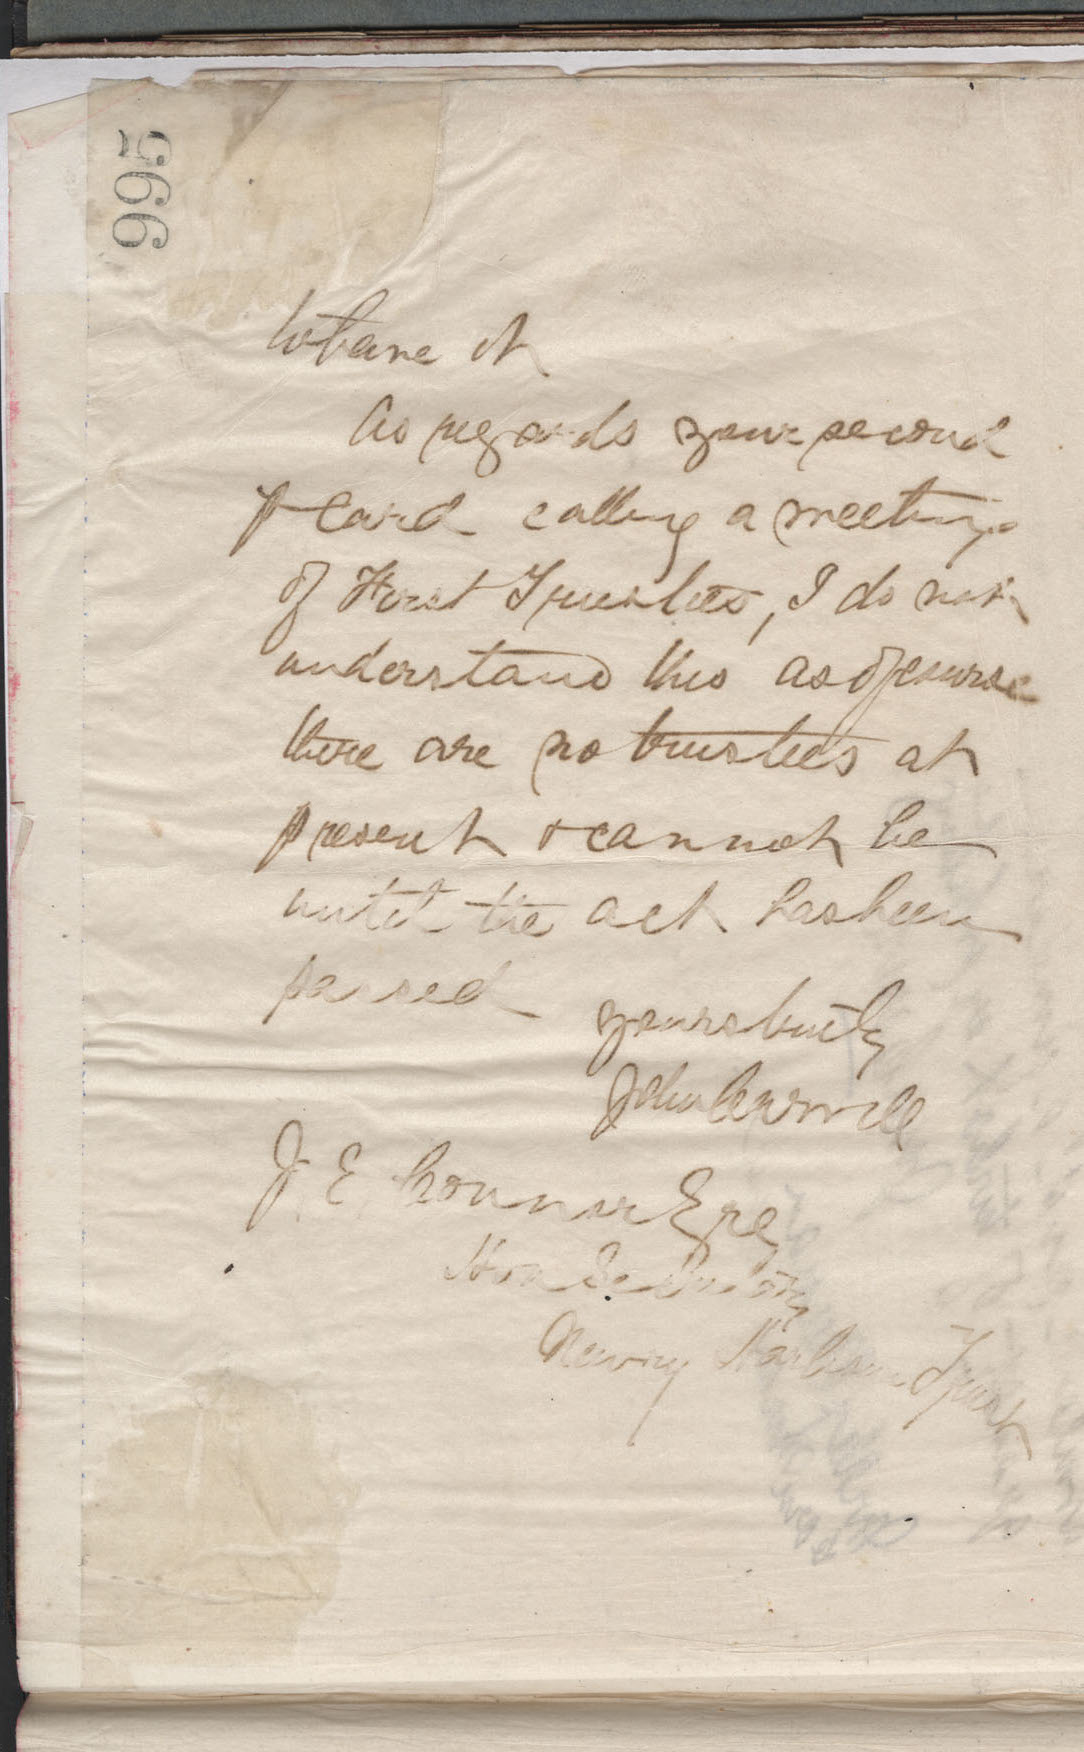 995
to have it
As regards your second
p card calling a meeting
of First Trustees, I do not
understand this as of course
there are no trustees at
present & cannot be
until the act has been
passed
yours truly
John
J. E. Connor Esq
Hon Secretary
Newry Harbour Trust